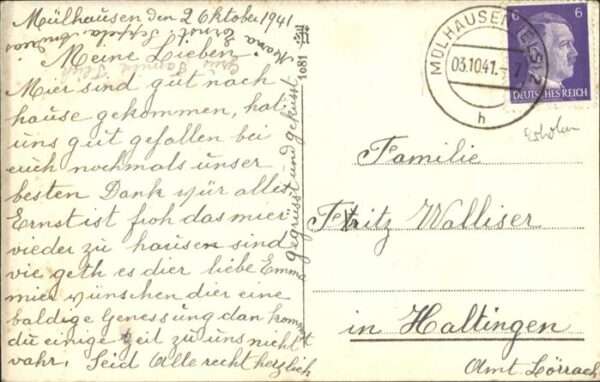 Mülhausen den 2 Oktober 1941
Meine Lieben
Mier sind gut nach
hause gekommen, hat
uns gut gefallen bei
euch nochmals unser
besten Dank für alles
Ernst ist froh das mier
wieder zu hausen sind
wie geth es dier liebe Emma
mier wünschen dier eine
baldige Genessung dan kommst
du einige Zeit zu uns nicht
wahr. Seid Alle recht herzlich
gegrüsst und geküsst
Mama Ernst
Familie
1081
MÜLHAUSEN (ELS) 2
03.10.41.
h
6 6
DEUTSCHES REICH
Familie
Fritz Walliser
in Haltingen
Amt Lörrach